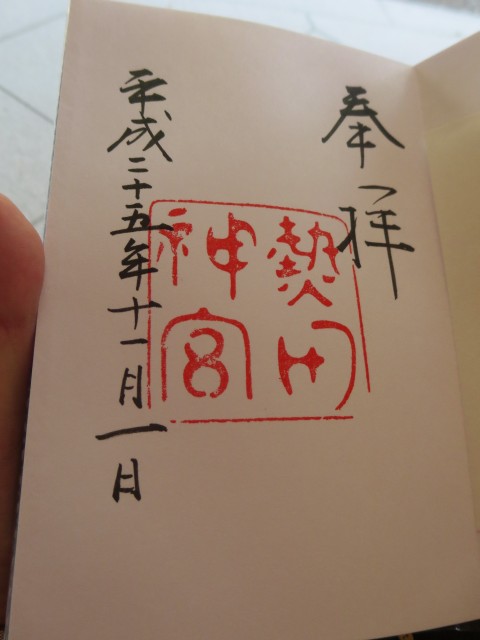 奉拝
熱田
神宮
平成二十五年十一月一日